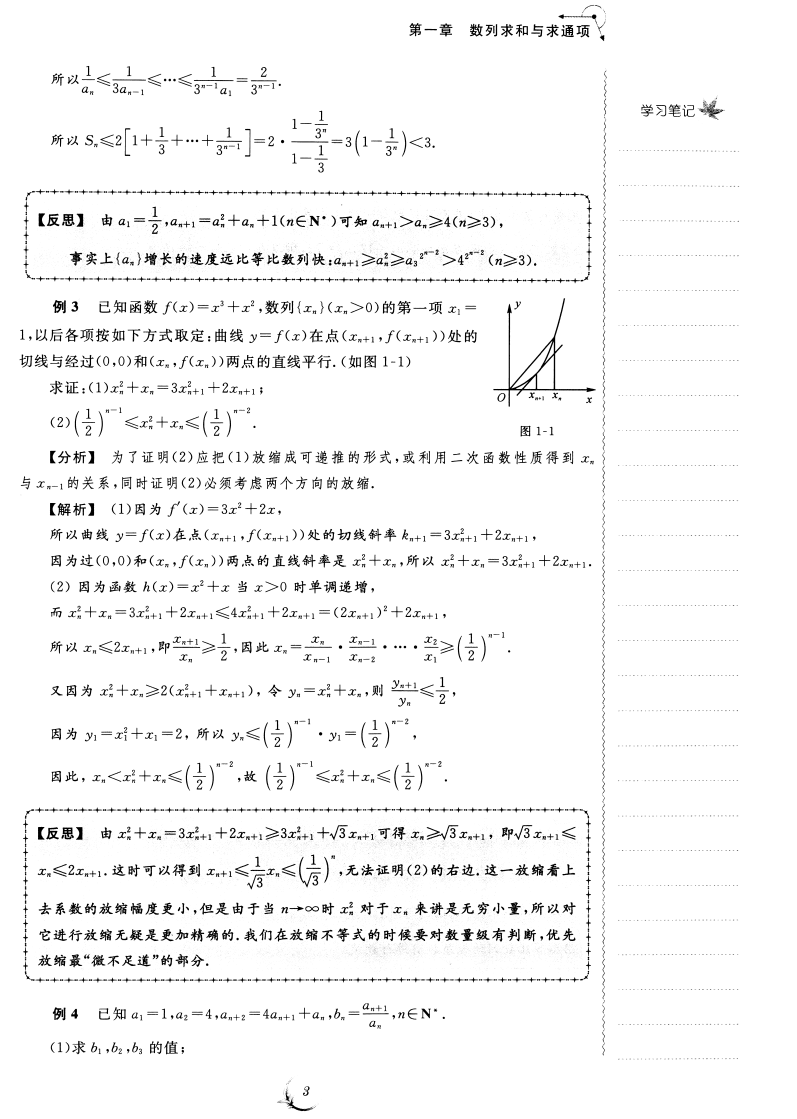 第一章 数列求和与求通项
所以 1/aₙ ≤ 1/(3aₙ₋₁) ≤ … ≤ 1/(3ⁿ⁻¹a₁) = 2/3ⁿ⁻¹.
学习笔记
所以 Sₙ≤2[1+1/3+…+1/3ⁿ⁻¹]=2·(1-1/3ⁿ)/(1-1/3)=3(1-1/3ⁿ)<3.
【反思】 由 a₁=1/2,aₙ₊₁=aₙ²+aₙ+1(n∈N*)可知 aₙ₊₁>aₙ≥4(n≥3),
事实上{aₙ}增长的速度远比等比数列快:aₙ₊₁≥aₙ²≥a₃^(2^(n-2))>4^(2^(n-2))(n≥3).
例 3 已知函数 f(x)=x³+x²,数列{xₙ}(xₙ>0)的第一项 x₁=
1,以后各项按如下方式取定:曲线 y=f(x)在点(xₙ₊₁,f(xₙ₊₁))处的
切线与经过(0,0)和(xₙ,f(xₙ))两点的直线平行.(如图 1-1)
求证:(1)xₙ²+xₙ=3xₙ₊₁²+2xₙ₊₁;
(2)(1/2)ⁿ⁻¹≤xₙ²+xₙ≤(1/2)ⁿ⁻².
y
O xₙ₊₁ xₙ x
图 1-1
【分析】 为了证明(2)应把(1)放缩成可递推的形式,或利用二次函数性质得到 xₙ
与 xₙ₋₁的关系,同时证明(2)必须考虑两个方向的放缩.
【解析】 (1)因为 f′(x)=3x²+2x,
所以曲线 y=f(x)在点(xₙ₊₁,f(xₙ₊₁))处的切线斜率 kₙ₊₁=3xₙ₊₁²+2xₙ₊₁,
因为过(0,0)和(xₙ,f(xₙ))两点的直线斜率是 xₙ²+xₙ,所以 xₙ²+xₙ=3xₙ₊₁²+2xₙ₊₁.
(2) 因为函数 h(x)=x²+x 当 x>0 时单调递增,
而 xₙ²+xₙ=3xₙ₊₁²+2xₙ₊₁≤4xₙ₊₁²+2xₙ₊₁=(2xₙ₊₁)²+2xₙ₊₁,
所以 xₙ≤2xₙ₊₁,即 xₙ₊₁/xₙ≥1/2,因此 xₙ=xₙ/xₙ₋₁·xₙ₋₁/xₙ₋₂·…·x₂/x₁≥(1/2)ⁿ⁻¹.
又因为 xₙ²+xₙ≥2(xₙ₊₁²+xₙ₊₁), 令 yₙ=xₙ²+xₙ,则 yₙ₊₁/yₙ≤1/2,
因为 y₁=x₁²+x₁=2, 所以 yₙ≤(1/2)ⁿ⁻¹·y₁=(1/2)ⁿ⁻²,
因此, xₙ<xₙ²+xₙ≤(1/2)ⁿ⁻²,故 (1/2)ⁿ⁻¹≤xₙ²+xₙ≤(1/2)ⁿ⁻².
【反思】 由 xₙ²+xₙ=3xₙ₊₁²+2xₙ₊₁≥3xₙ₊₁²+√3xₙ₊₁可得 xₙ≥√3xₙ₊₁, 即√3xₙ₊₁≤
xₙ≤2xₙ₊₁.这时可以得到 xₙ₊₁≤1/√3 xₙ≤(1/√3)ⁿ,无法证明(2)的右边.这一放缩看上
去系数的放缩幅度更小,但是由于当 n→∞时 xₙ² 对于 xₙ 来讲是无穷小量,所以对
它进行放缩无疑是更加精确的.我们在放缩不等式的时候要对数量级有判断,优先
放缩最“微不足道”的部分.
例 4 已知 a₁=1,a₂=4,aₙ₊₂=4aₙ₊₁+aₙ,bₙ=aₙ₊₁/aₙ,n∈N*.
(1)求 b₁,b₂,b₃ 的值;
3